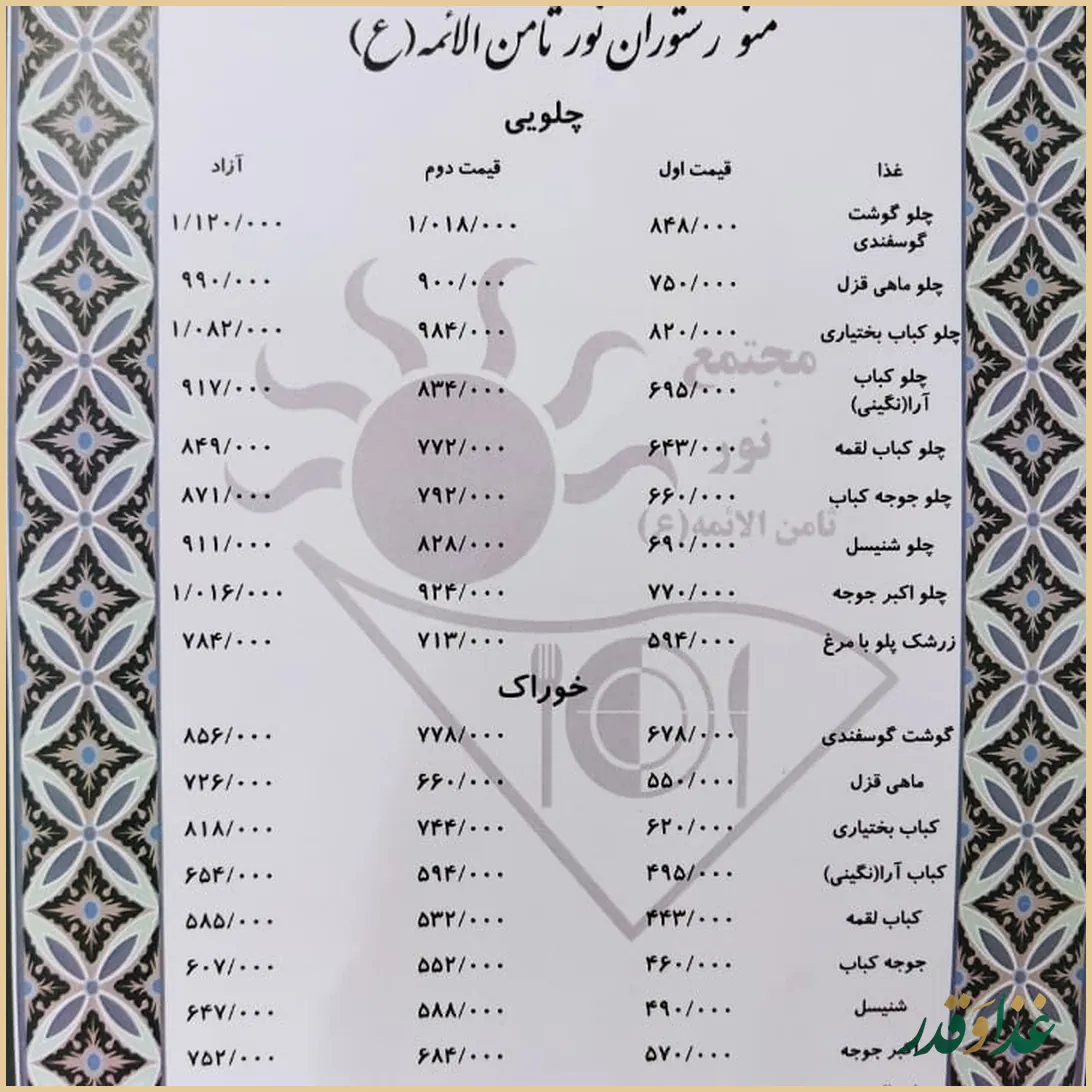 منو رستوران نور ثامن الائمه(ع)
چلویی
غذا قیمت اول قیمت دوم آزاد
چلو گوشت گوسفندی ۸۴۸/۰۰۰ ۱/۰۱۸/۰۰۰ ۱/۱۲۰/۰۰۰
چلو ماهی قزل ۷۵۰/۰۰۰ ۹۰۰/۰۰۰ ۹۹۰/۰۰۰
چلو کباب بختیاری ۸۲۰/۰۰۰ ۹۸۴/۰۰۰ ۱/۰۸۲/۰۰۰
چلو کباب آرا(نگینی) ۶۹۵/۰۰۰ ۸۳۴/۰۰۰ ۹۱۷/۰۰۰
چلو کباب لقمه ۶۴۳/۰۰۰ ۷۷۲/۰۰۰ ۸۴۹/۰۰۰
چلو جوجه کباب ۶۶۰/۰۰۰ ۷۹۲/۰۰۰ ۸۷۱/۰۰۰
چلو شنیسل ۶۹۰/۰۰۰ ۸۲۸/۰۰۰ ۹۱۱/۰۰۰
چلو اکبر جوجه ۷۷۰/۰۰۰ ۹۲۴/۰۰۰ ۱/۰۱۶/۰۰۰
زرشک پلو با مرغ ۵۹۴/۰۰۰ ۷۱۳/۰۰۰ ۷۸۴/۰۰۰
خوراک
گوشت گوسفندی ۶۷۸/۰۰۰ ۷۷۸/۰۰۰ ۸۵۶/۰۰۰
ماهی قزل ۵۵۰/۰۰۰ ۶۶۰/۰۰۰ ۷۲۶/۰۰۰
کباب بختیاری ۶۲۰/۰۰۰ ۷۴۴/۰۰۰ ۸۱۸/۰۰۰
کباب آرا(نگینی) ۴۹۵/۰۰۰ ۵۹۴/۰۰۰ ۶۵۴/۰۰۰
کباب لقمه ۴۴۳/۰۰۰ ۵۳۲/۰۰۰ ۵۸۵/۰۰۰
جوجه کباب ۴۶۰/۰۰۰ ۵۵۲/۰۰۰ ۶۰۷/۰۰۰
شنیسل ۴۹۰/۰۰۰ ۵۸۸/۰۰۰ ۶۴۷/۰۰۰
اکبر جوجه ۵۷۰/۰۰۰ ۶۸۴/۰۰۰ ۷۵۲/۰۰۰
مجتمع
نور
ثامن الائمه(ع)
غذا و قدر